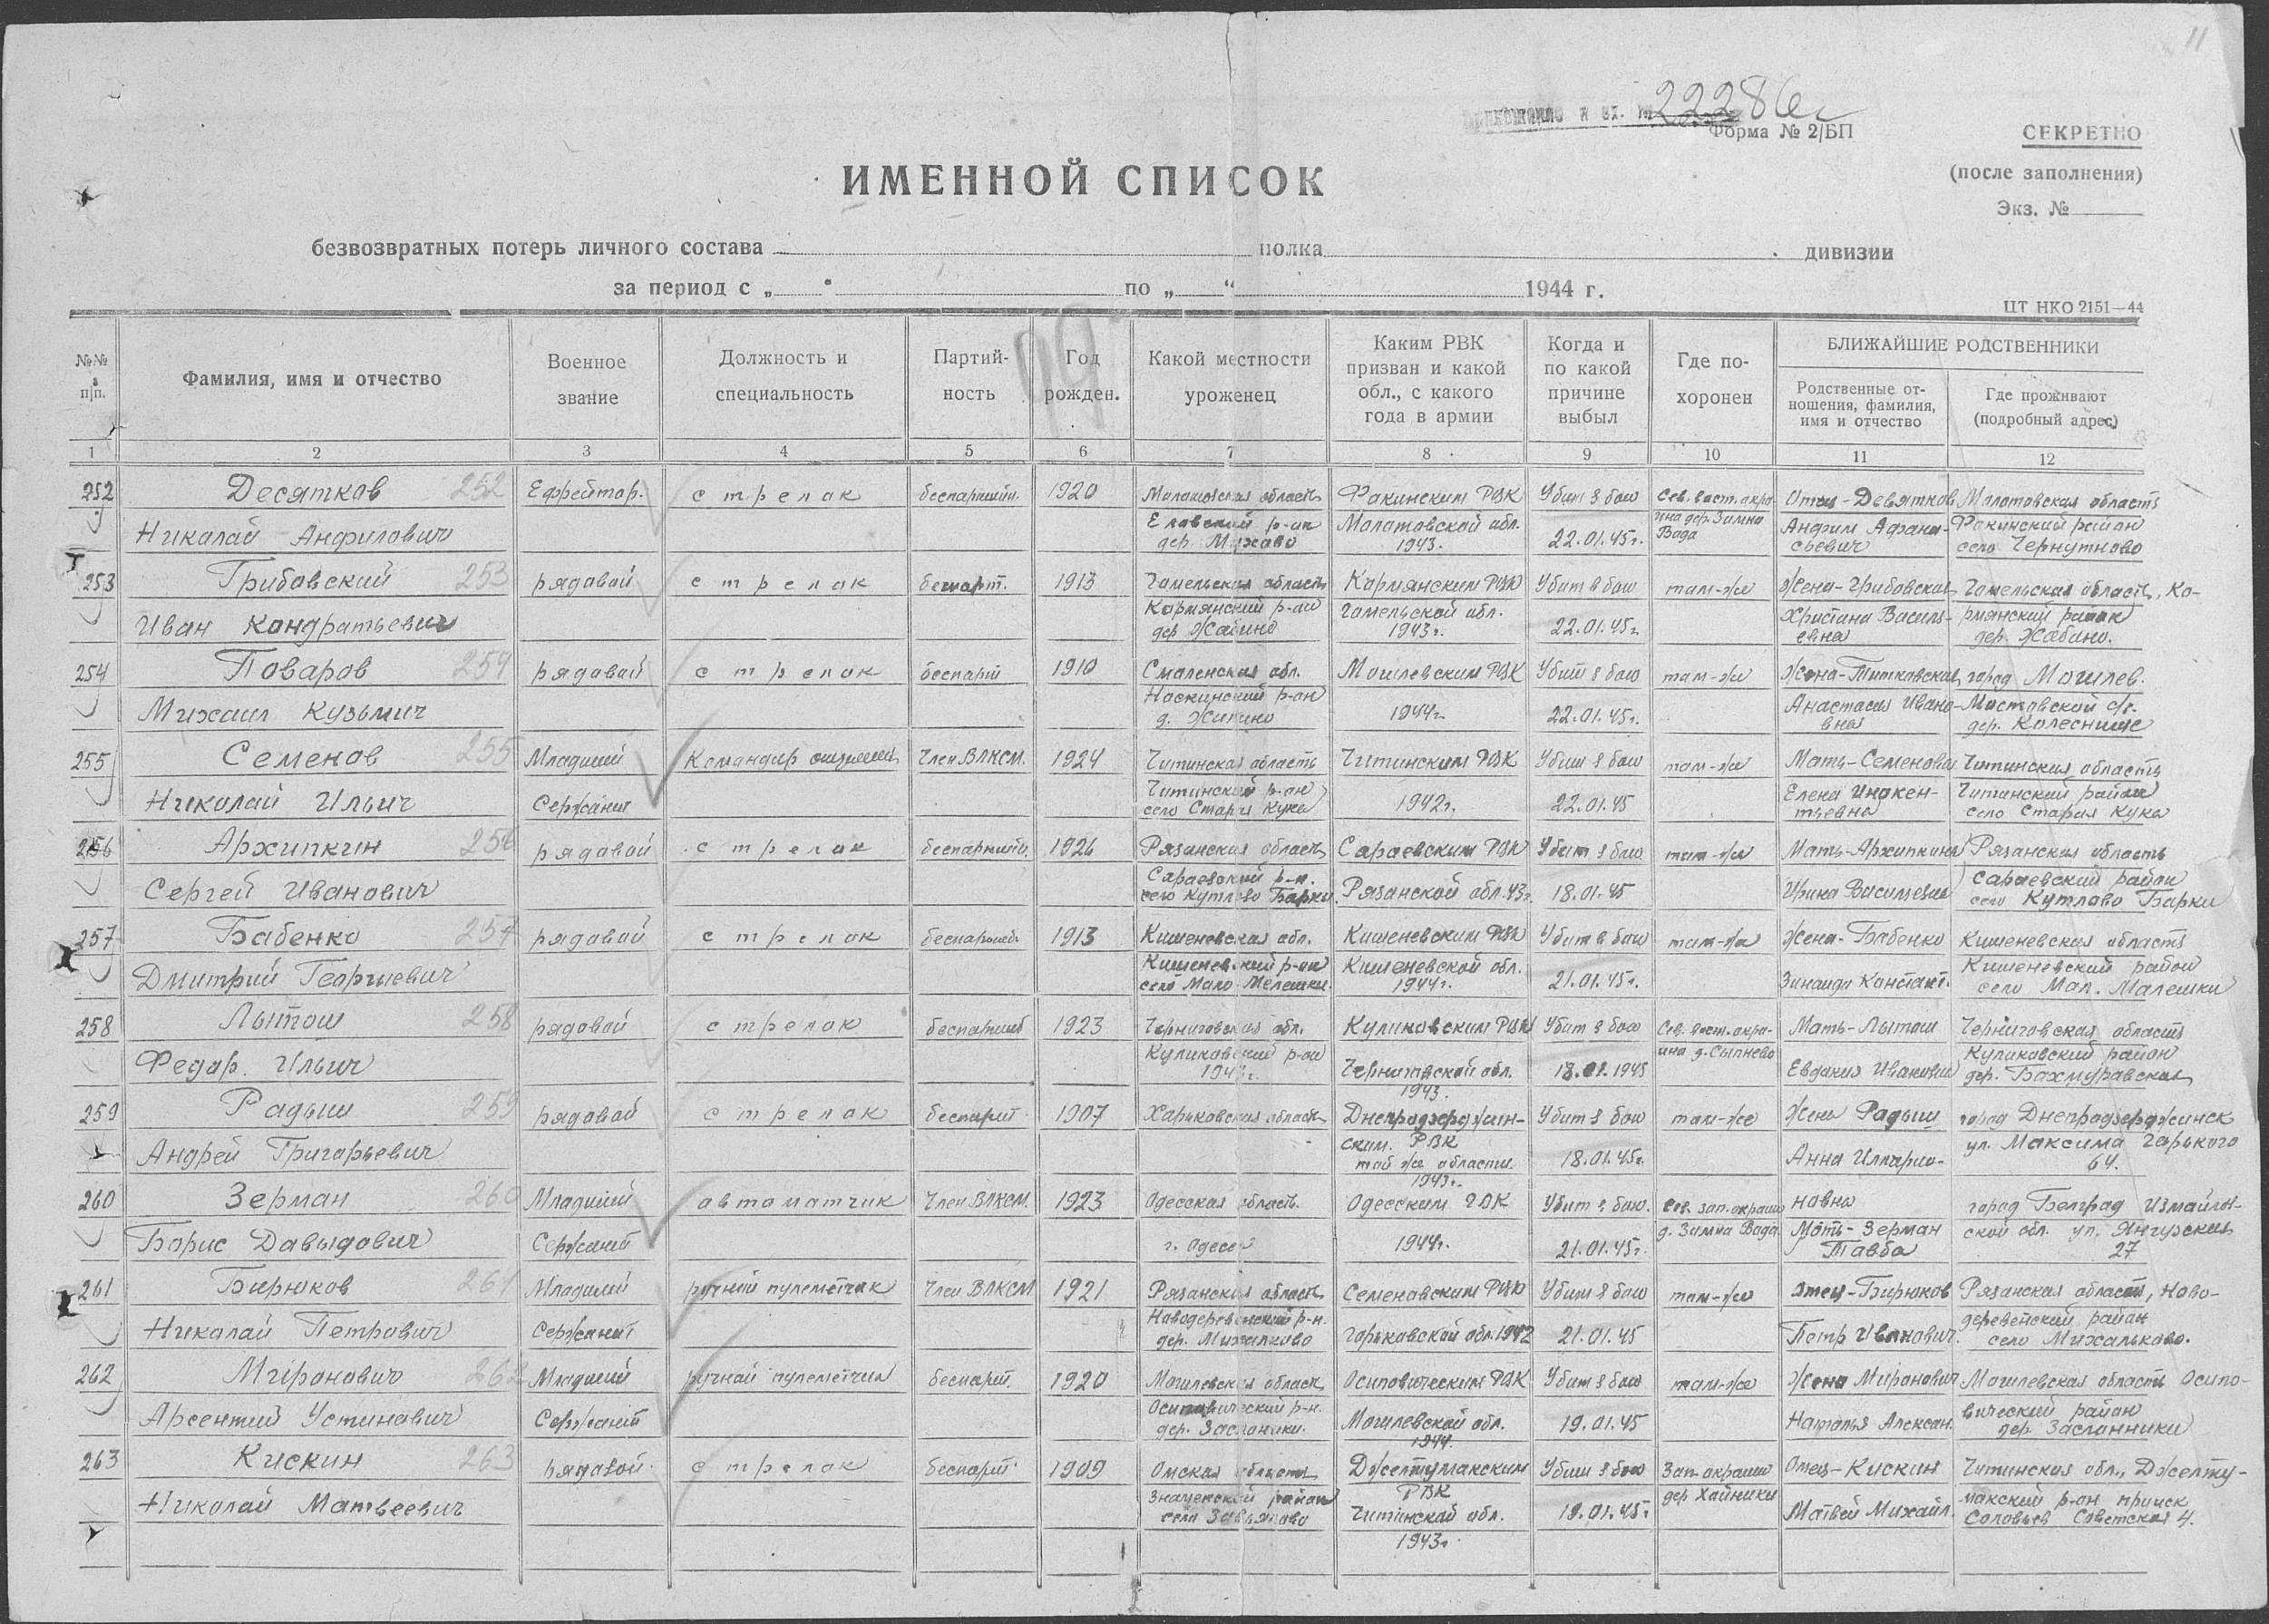 11
22286с
Форма № 2/БП
СЕКРЕТНО
(после заполнения)
Экз. №
ИМЕННОЙ СПИСОК
безвозвратных потерь личного состава полка дивизии
за период с „ “ по „ “ 1944 г.
ЦТ НКО 2151—44
№№ п/п.
Фамилия, имя и отчество
Военное звание
Должность и специальность
Партийность
Год рожден.
Какой местности уроженец
Каким РВК призван и какой обл., с какого года в армии
Когда и по какой причине выбыл
Где похоронен
БЛИЖАЙШИЕ РОДСТВЕННИКИ
Родственные отношения, фамилия, имя и отчество
Где проживают (подробный адрес)
1 2 3 4 5 6 7 8 9 10 11 12
252 Десятков 252 Ефрейтор. стрелок беспартийн. 1920 Молотовская область Фокинским РВК Убит в бою Сев. вост. окра- Отец-Девятков Молотовская область
Николай Анфилович Еловский р-он Молотовской обл. 1943. 22.01.45г. ина дер. Зимна Вода Андрил Афана- Фокинский район
дер. Мухово сьевич село Чернутново
253 Грибовский 253 рядовой стрелок беспарт. 1913 Гомельская область Кормянским РВК Убит в бою там-же Жена-Грибовская Гомельская область, Ко-
Иван Кондратьевич Кормянский р-он Гомельской обл. 1943г. 22.01.45г. Христина Василь- рмянский район
дер Жабино евна дер. Жабино.
254 Поваров 254 рядовой стрелок беспарт 1910 Смоленская обл. Могилевским РВК Убит в бою там-же Жена-Титковская город Могилев.
Михаил Кузьмич р-он 1944г. 22.01.45г. Анастасия Ивано- Мостовской с/с.
д. Жипино вна дер. Колеснище
255 Семенов 255 Младший Командир отделения Член ВЛКСМ. 1924 Читинская область Читинским РВК Убит в бою там-же Мать-Семенова Читинская область
Николай Ильич Сержант Читинский р-он 1942г. 22.01.45 Елена Инокен- Читинский район
село Старая Кука тьевна село Старая Кука
256 Архипкин 256 рядовой стрелок беспартийн. 1926 Рязанская область Сараевским РВК Убит в бою там-же Мать-Архипкина Рязанская область
Сергей Иванович Сараевский р-н. Рязанской обл. 43г. 18.01.45 Ирина Васильевна Сараевский район
село Кутлово Барки село Кутлово Барки
257 Бабенко 257 рядовой стрелок беспартийн. 1913 Кишеневская обл. Кишеневским РВК Убит в бою там-же Жена-Бабенко Кишеневская область
Дмитрий Георгиевич Кишеневский р-он Кишеневской обл. 1944г. 21.01.45г. Зинаида Констант. Кишеневский район
село Мало-Мелешки. село Мал. Малешки
258 Лытош 258 рядовой стрелок беспартийн 1923 Черниговская обл. Куликовским РВК Убит в бою Сев. вост. окра- Мать-Лытош Черниговская область
Федор. Ильич Куликовский р-он Черниговской обл. 1943. 18.01.1945 ина д. Сыпнево Евдокия Ивановна Куликовский район
дер. Бахмуравская
259 Радыш 259 рядовой стрелок беспарт 1907 Харьковская область Днепродзержин- Убит в бою там-же Жена Радыш город Днепродзержинск
Андрей Григорьевич ским. РВК той же области. 1943г. 18.01.45г. Анна Илларио- ул. Максима Горького 64.
260 Зерман 260 Младший автоматчик Член ВЛКСМ. 1923 Одесская область. Одесским РВК Убит в бою. Сев. зап. окраин новна город Болград Измаиль-
Борис Давыдович Сержант г. Одесса 1944г. 21.01.45г. д. Зимна Вода. Мать-Зерман Тавба ской обл. ул. Янгурская 27
261 Бирюков 261 Младший ручной пулеметчик Член ВЛКСМ 1921 Рязанская область Семеновским РВК Убит в бою там-же Отец-Бирюков Рязанская область, Ново-
Николай Петрович Сержант Новодеревенский р-н. Горьковской обл. 1942 21.01.45 Петр Иванович. деревенский район
дер. Михалково село Михальково.
262 Миронович 262 Младший ручной пулеметчик беспарт. 1920 Могилевская область Осиповическим РВК Убит в бою там-же Жена Миронович Могилевская область Осипо-
Арсентий Устинович Сержант Осиповический р-н. Могилевской обл. 1944. 19.01.45 Наталья Алексан. вический район
дер. Заслоники. дер. Заслонники
263 Кискин 263 рядовой. стрелок беспарт. 1909 Омская область Джелтулакским РВК Убит в бою Зап. окраин Отец-Кискин Читинская обл., Джелту-
Николай Матвеевич Знаменский район Читинской обл. 1943г. 19.01.45г. дер Хойники Матвей Михайл. лакский р-он прииск
село Завьялово Соловьев Советская 4.